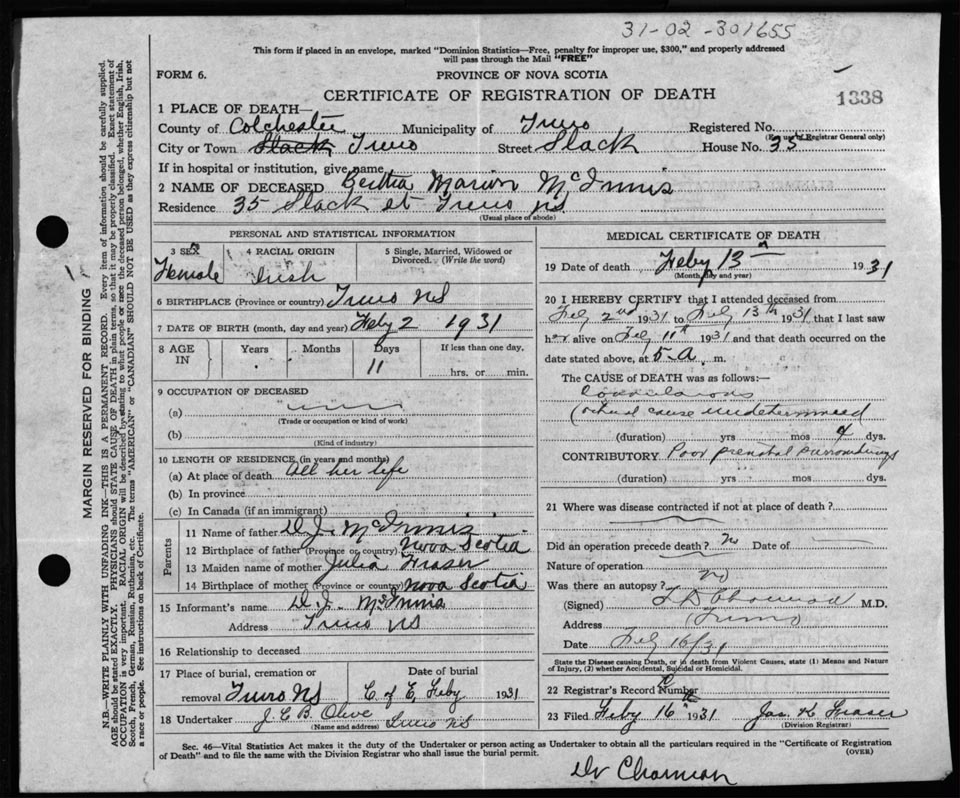 31-02-301655
This form if placed in an envelope, marked "Dominion Statistics—Free, penalty for improper use, $300," and properly addressed
will pass through the Mail "FREE"
FORM 6.
PROVINCE OF NOVA SCOTIA
CERTIFICATE OF REGISTRATION OF DEATH
1338
1 PLACE OF DEATH—
County of Colchester Municipality of Truro Registered No.
(For use of Registrar General only)
City or Town Slack Truro Street Slack House No. 35
If in hospital or institution, give name
2 NAME OF DECEASED Bertha Marion McInnis
Residence 35 Slack st Truro NS
(Usual place of abode)
PERSONAL AND STATISTICAL INFORMATION
3 SEX 4 RACIAL ORIGIN 5 Single, Married, Widowed or Divorced. (Write the word)
Female Irish
6 BIRTHPLACE (Province or country) Truro NS
7 DATE OF BIRTH (month, day and year) Feby 2 1931
8 AGE IN Years Months Days If less than one day,
11 hrs. or min.
9 OCCUPATION OF DECEASED
(a)
(Trade or occupation or kind of work)
(b)
(Kind of industry)
10 LENGTH OF RESIDENCE (in years and months)
(a) At place of death All her life
(b) In province
(c) In Canada (if an immigrant)
Parents
11 Name of father D. J. McInnis
12 Birthplace of father (Province or country) Nova Scotia
13 Maiden name of mother Julia Fraser
14 Birthplace of mother (Province or country) Nova Scotia
15 Informant's name D. J. McInnis
Address Truro NS
16 Relationship to deceased
17 Place of burial, cremation or Date of burial
removal Truro NS C of E, Feby 1931
18 Undertaker J. C. B. Olive Truro NS
(Name and address)
MEDICAL CERTIFICATE OF DEATH
19 Date of death Feby 13 1931
(Month, day and year)
20 I HEREBY CERTIFY that I attended deceased from
Feb 2nd 1931 to Feb 13th 1931 that I last saw
her alive on Feb 11th 1931 and that death occurred on the
date stated above, at 5-a. m.
The CAUSE of DEATH was as follows:—
(actual cause undetermined
(duration) yrs mos 4 dys.
CONTRIBUTORY Poor prenatal surroundings
(duration) yrs mos dys.
21 Where was disease contracted if not at place of death?
Did an operation precede death? No Date of
Nature of operation
Was there an autopsy? no
(Signed) M.D.
Address Truro
Date Feb 16/31
State the Disease causing Death, or in death from Violent Causes, state (1) Means and Nature
of Injury, (2) whether Accidental, Suicidal or Homicidal.
22 Registrar's Record Number
23 Filed Feby 16th 1931 Jas. K Fraser
(Division Registrar)
Sec. 46—Vital Statistics Act makes it the duty of the Undertaker or person acting as Undertaker to obtain all the particulars required in the "Certificate of Registration
of Death" and to file the same with the Division Registrar who shall issue the burial permit.
(OVER)
Dr Charman
MARGIN RESERVED FOR BINDING
N.B.—WRITE PLAINLY WITH UNFADING INK—THIS IS A PERMANENT RECORD. Every item of information should be carefully supplied.
AGE should be stated EXACTLY. PHYSICIANS should STATE CAUSE OF DEATH in plain terms, so that it may be properly classified. Exact statement of
OCCUPATION is very important. RACIAL ORIGIN will be described by stating to what people or race the deceased person belonged, whether English, Irish,
Scotch, French, German, Russian, Ruthenian, etc. The terms "AMERICAN" or "CANADIAN" SHOULD NOT BE USED as they express citizenship but not
a race or people. See instructions on back of Certificate.